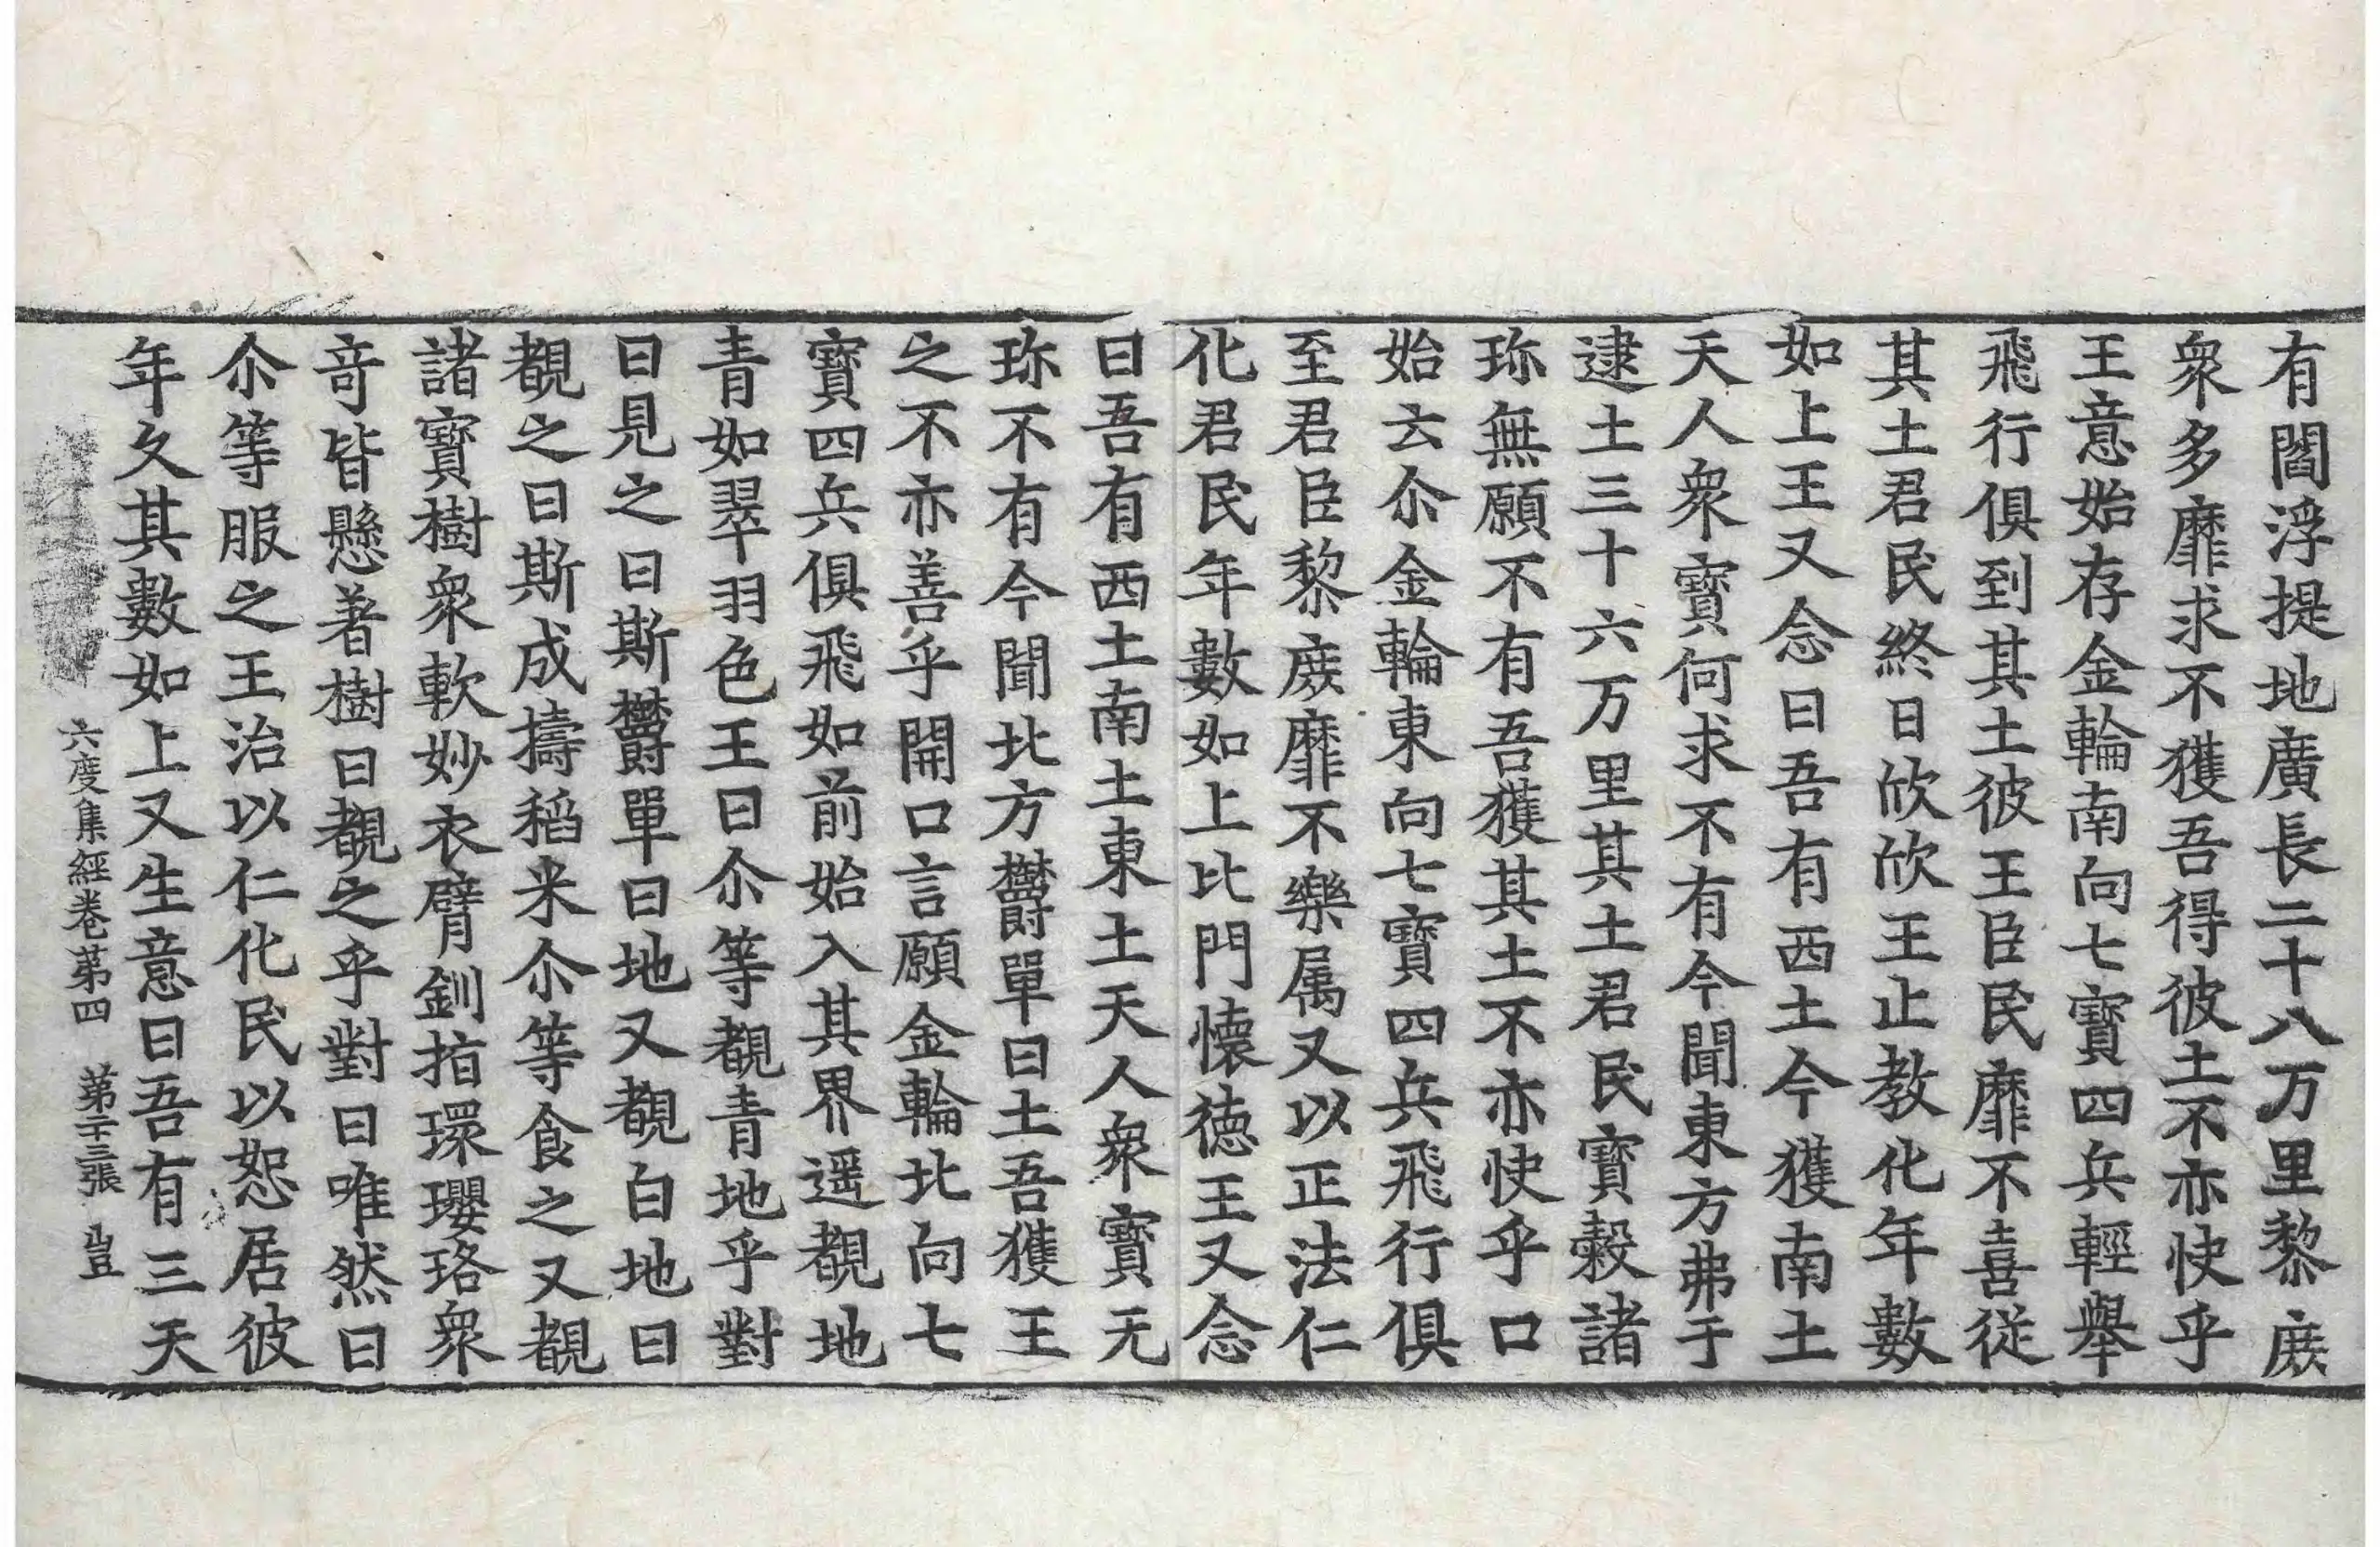 有閻浮提地廣長二十八万里黎庶
衆多靡求不獲吾得彼土不亦快乎
王意始存金輪南向七寶四兵輕舉
飛行俱到其土彼王臣民靡不喜從
其土君民終日欣欣王止教化年數
如上王又念曰吾有西土今獲南土
天人衆寶何求不有今聞東方弗于
逮土三十六万里其土君民寶穀諸
珎無願不有吾獲其土不亦快乎口
始云尒金輪東向七寶四兵飛行俱
至君臣黎庶靡不樂属又以正法仁
化君民年數如上比門懐徳王又念
曰吾有西土南土東土天人衆寶无
珎不有今聞北方欝單曰土吾獲王
之不亦善乎開口言願金輪北向七
寶四兵俱飛如前始入其界遥覩地
青如翠羽色王曰尒等覩青地乎對
曰見之曰斯欝單曰地又覩白地曰
覩之曰斯成擣稻米尒等食之又覩
諸寶樹衆軟妙衣臂釧指環瓔珞衆
奇皆懸著樹曰覩之乎對曰唯然曰
尒等服之王治以仁化民以恕居彼
年久其數如上又生意曰吾有三天
六度集經卷第四 第二十三張 豈